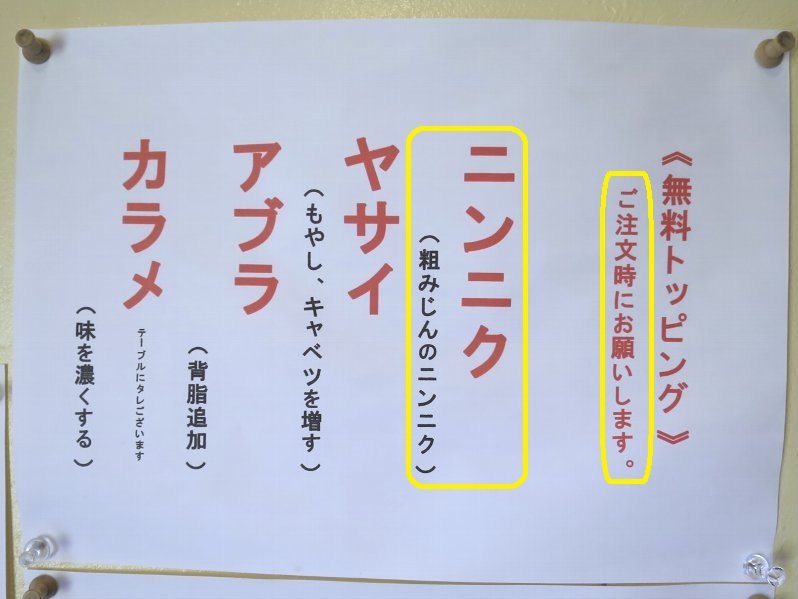 《無料トッピング》
ご注文時にお願いします。
ニンニク
(粗みじんのニンニク)
ヤサイ
(もやし、キャベツを増す)
アブラ
(背脂追加)
カラメ
テーブルにタレございます
(味を濃くする)